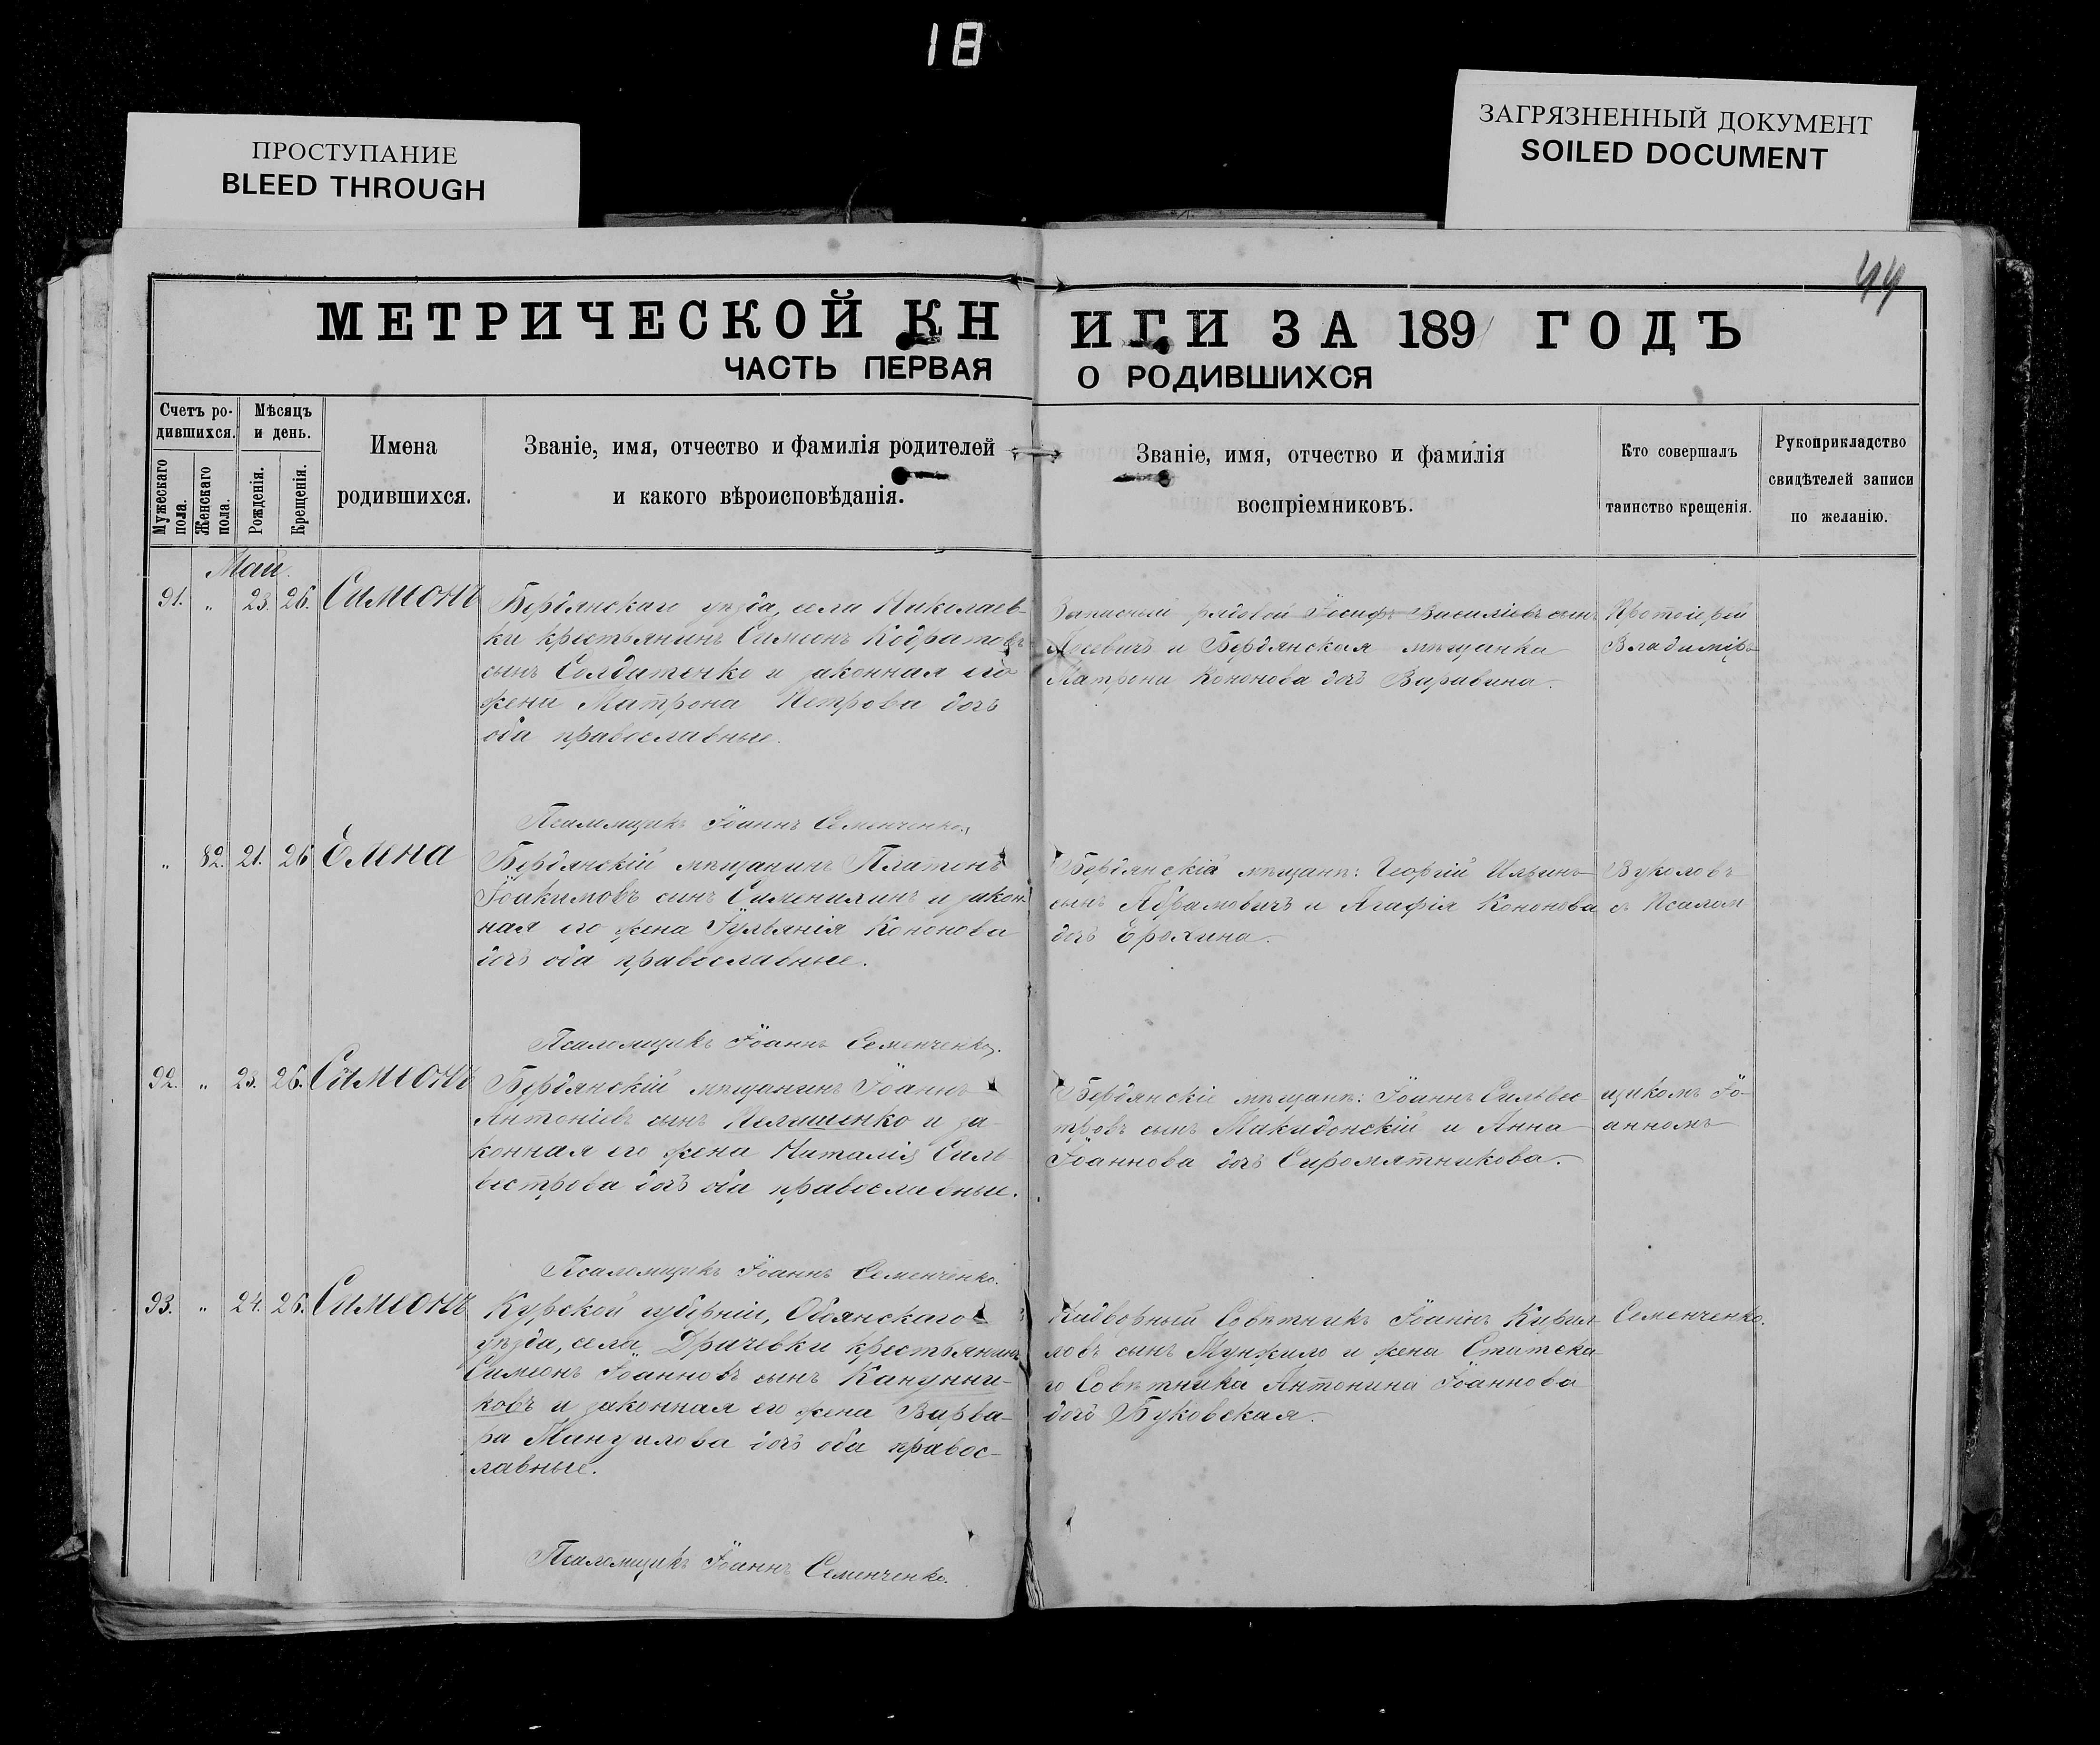 18
ПРОСТУПАНИЕ
BLEED THROUGH
ЗАГРЯЗНЕННЫЙ ДОКУМЕНТ
SOILED DOCUMENT
44
МЕТРИЧЕСКОЙ КНИГИ ЗА 189 ГОДЪ
ЧАСТЬ ПЕРВАЯ О РОДИВШИХСЯ
Счетъ ро-
дившихся.
Мужескаго
пола.
Женскаго
пола.
Мѣсяцъ
и день.
Рожденія.
Крещенія.
Имена
родившихся.
Званіе, имя, отчество и фамилія родителей
и какого вѣроисповѣданія.
Званіе, имя, отчество и фамилія
воспріемниковъ.
Кто совершалъ
таинство крещенія.
Рукоприкладство
свидѣтелей записи
по желанію.
Май.
91. " 23. 26. Симеонъ
Бердянскаго уѣзда, села Николаев-
ки крестьянинъ Симеонъ
сынъ Солдатенко и законная его
жена Матрона Петрова дочь
оба православные.
Псаломщикъ Іоаннъ Семенченко.
Запасный рядовой Іосифъ Василіевъ сынъ
и Бердянская мѣщанка
Матрона Кононова дочь Варавина.
Протоіерей
Владиміръ
" 82. 21. 26 Елена
Бердянскій мѣщанинъ Платонъ
Іоакимовъ сынъ и закон-
ная его жена Іуліанія Кононова
дочь оба православные.
Псаломщикъ Іоаннъ Семенченко.
Бердянскіе мѣщане: Георгій Ильинъ
сынъ Абрамовичъ и Агафія Кононова
дочь Ерохина.
Вуколовъ
съ Псалом
92. " 23. 26. Симеонъ
Бердянскій мѣщанинъ Іоаннъ
Антоніевъ сынъ и за-
конная его жена Наталія Силь-
вестрова дочь оба православные.
Псаломщикъ Іоаннъ Семенченко.
Бердянскіе мѣщане: Іоаннъ Сильвес-
тровъ сынъ Македонскій и Анна
Іоаннова дочь Сыромятникова.
щикомъ Іо-
анномъ
93. " 24. 26. Симеонъ
Курской губерніи, Обоянскаго
уѣзда, села Драчевки крестьянинъ
Симеонъ Іоанновъ сынъ Канунни-
ковъ и законная его жена Варва-
ра Мануилова дочь оба правос-
лавные.
Псаломщикъ Іоаннъ Семенченко.
Надворный Совѣтникъ Іоаннъ Кирил-
ловъ сынъ Мунжило и жена Статска-
го Совѣтника Антонина Іоаннова
дочь Буковская.
Семенченко.